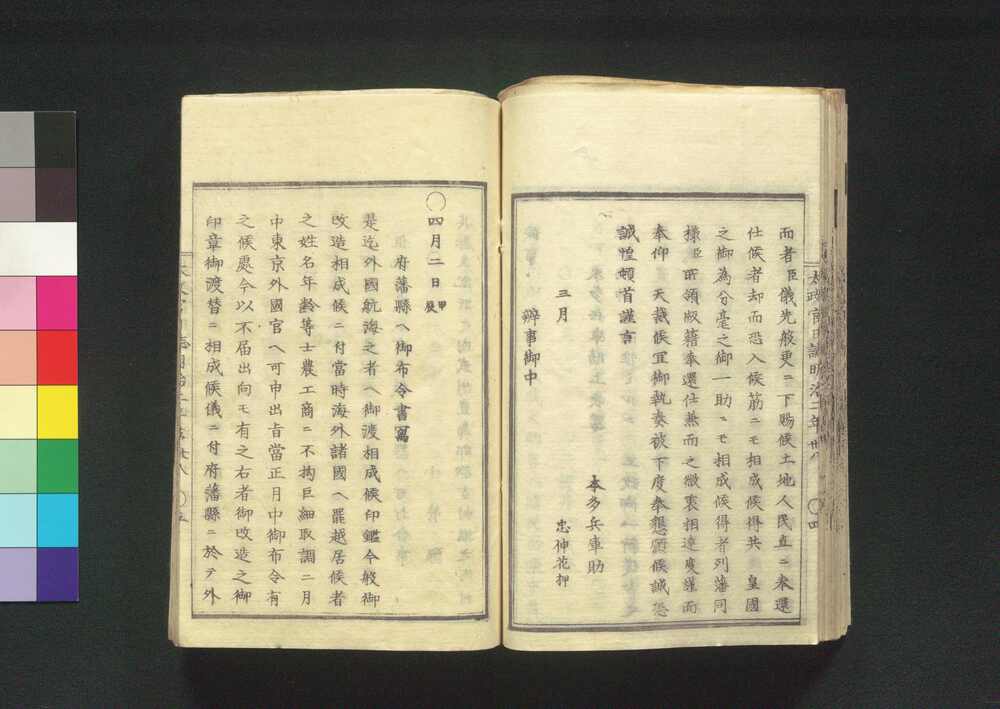 而者臣儀先般更ニ下賜候土地人民直ニ奉還
仕候者却而恐入候筋ニモ相成候得共 皇國
之御為分毫之御一助ニモ相成候得者列藩同
樣臣所領版籍奉還仕兼而之微衷相達度謹而
奉仰 天裁候宜御執奏被下度奉懇願候誠恐
誠惶頓首謹言
三月
本多兵庫助
忠伸花押
辨事御中
太政官日誌明治二年
四
○四月二日甲辰
府藩縣ヘ御布令書寫
是迄外國航海之者ヘ御渡相成候印鑑今般御
改造相成候ニ付當時海外諸國ヘ罷越居候者
之姓名年齡等士農工商ニ不拘巨細取調二月
中東京外國官ヘ可申出旨當正月中御布令有
之候處今以不届出向モ有之右者御改造之御
印章御渡替ニ相成候儀ニ付府藩縣ニ於テ外